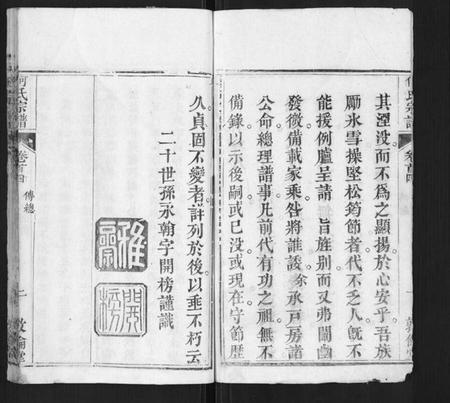 何氏宗譜
卷首四
其湮没而不為之顯揚於心安乎吾族
勵氷雪操堅松筠節者代不乏人旣不
能援例臚呈請 旨旌别而又弗闡幽
發微備載家乘咎將誰諉余承戸房諸
公命總理譜事凡前代有功之祖無不
備錄以示後嗣或已没或現在守節歷
久貞固不變者詳列於後以垂不朽云
二十世孫永翰字開榜謹識
開榜
何氏宗譜
卷首四 傳總
一 敦倫堂